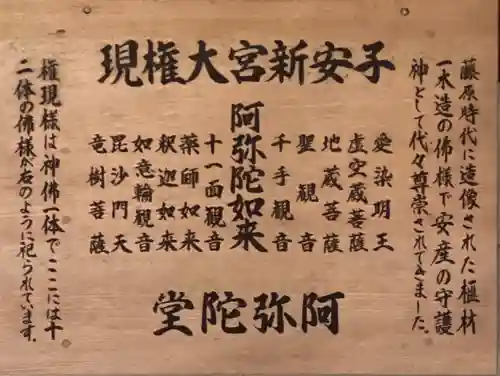 子安新宮大権現
藤原時代に造像された榧材
一木造の佛様で安産の守護
神として代々尊崇されてきました。
愛染明王
虚空蔵菩薩
地蔵菩薩
聖観音
千手観音
阿弥陀如来
十一面観音
薬師如来
釈迦如来
如意輪観音
毘沙門天
竜樹菩薩
権現様は神佛一体で、ここには十
二体の佛様が右のように祀られています。
阿弥陀堂